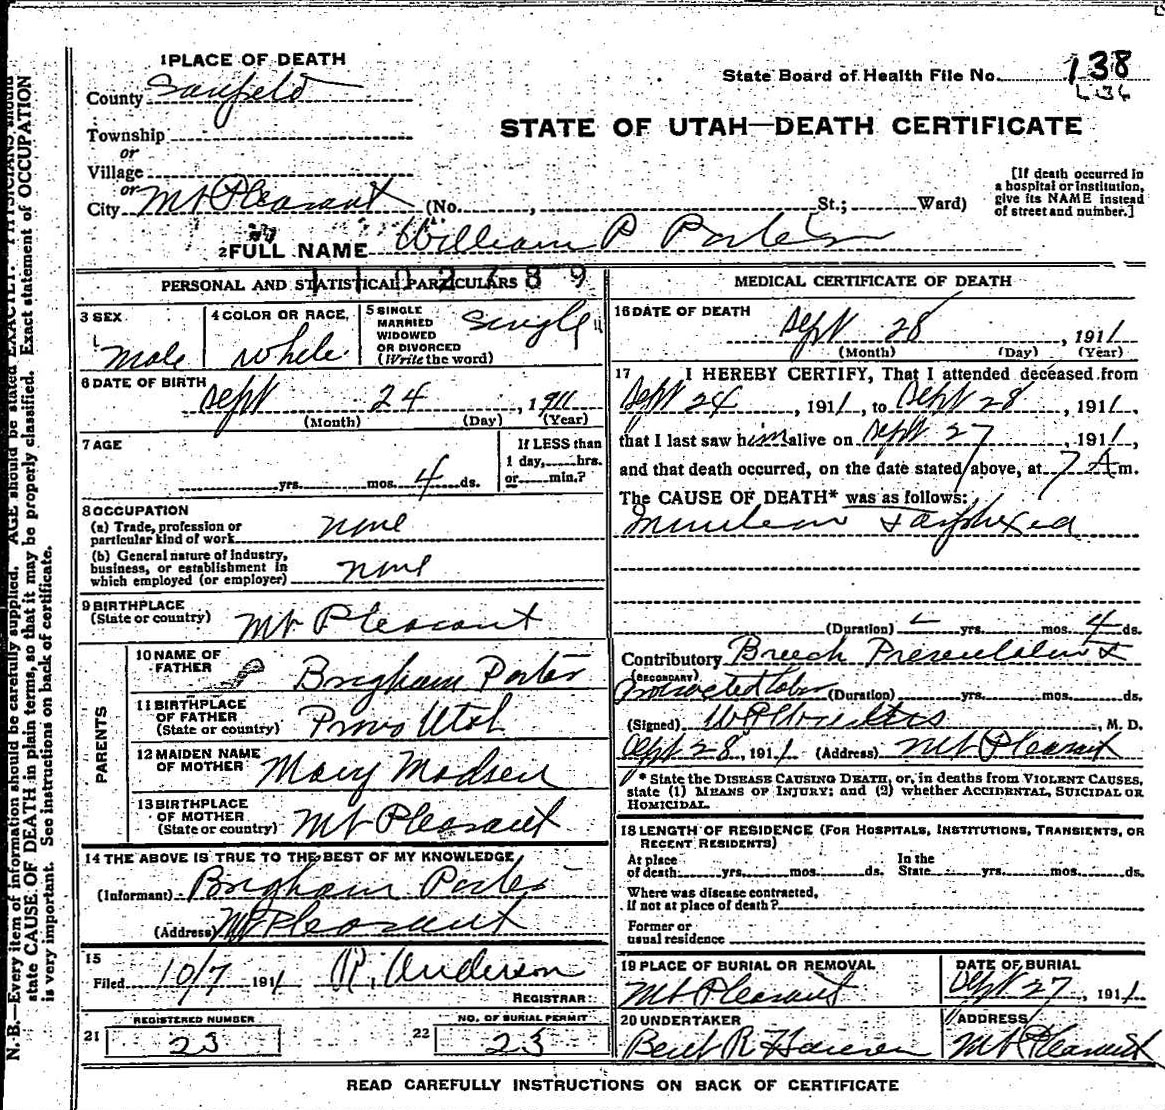 1 PLACE OF DEATH
State Board of Health File No. 138
County
L 36
STATE OF UTAH—DEATH CERTIFICATE
Township
or
Village
or
City Mt Pleasant (No. , St.; Ward)
[If death occurred in
a hospital or institution,
give its NAME instead
of street and number.]
2 FULL NAME William P Porter
1102789
PERSONAL AND STATISTICAL PARTICULARS
3 SEX
Male
4 COLOR OR RACE
White
5 SINGLE
MARRIED
WIDOWED
OR DIVORCED
(Write the word)
Single
6 DATE OF BIRTH
Sept 24, 1911
(Month) (Day) (Year)
7 AGE
yrs. mos. 4 ds.
If LESS than
1 day, hrs.
or min.?
8 OCCUPATION
(a) Trade, profession or
particular kind of work none
(b) General nature of industry,
business, or establishment in
which employed (or employer) none
9 BIRTHPLACE
(State or country) Mt Pleasant
PARENTS
10 NAME OF
FATHER Brigham Porter
11 BIRTHPLACE
OF FATHER
(State or country) Provo Utah
12 MAIDEN NAME
OF MOTHER Mary Madsen
13 BIRTHPLACE
OF MOTHER
(State or country) Mt Pleasant
14 THE ABOVE IS TRUE TO THE BEST OF MY KNOWLEDGE
(Informant) Brigham Porter
(Address) Mt Pleasant
15
Filed 10/7 1911 Anderson
REGISTRAR
REGISTERED NUMBER
21 23
NO. OF BURIAL PERMIT
22 23
MEDICAL CERTIFICATE OF DEATH
16 DATE OF DEATH
Sept 28, 1911
(Month) (Day) (Year)
17 I HEREBY CERTIFY, That I attended deceased from
Sept 24, 1911, to Sept 28, 1911,
that I last saw him alive on Sept 27, 1911,
and that death occurred, on the date stated above, at 7 A m.
The CAUSE OF DEATH* was as follows:
(Duration) yrs. mos. 4 ds.
Contributory Breech Presentation &
(SECONDARY)
protracted labor (Duration) yrs. mos. ds.
(Signed) , M. D.
Sept 28, 1911 (Address) Mt Pleasant
* State the DISEASE CAUSING DEATH, or, in deaths from VIOLENT CAUSES,
state (1) MEANS OF INJURY; and (2) whether ACCIDENTAL, SUICIDAL OR
HOMICIDAL.
18 LENGTH OF RESIDENCE (FOR HOSPITALS, INSTITUTIONS, TRANSIENTS, OR
RECENT RESIDENTS)
At place
of death yrs. mos. ds.
In the
State yrs. mos. ds.
Where was disease contracted,
if not at place of death?
Former or
usual residence
19 PLACE OF BURIAL OR REMOVAL
Mt Pleasant
DATE OF BURIAL
Sept 27, 1911
20 UNDERTAKER
Bent R Hansen
ADDRESS
Mt Pleasant
READ CAREFULLY INSTRUCTIONS ON BACK OF CERTIFICATE
N. B.—Every item of information should be carefully supplied. AGE should be stated EXACTLY. PHYSICIANS should
state CAUSE OF DEATH in plain terms, so that it may be properly classified. Exact statement of OCCUPATION
is very important. See instructions on back of certificate.